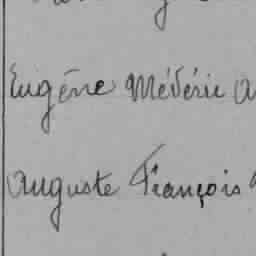 Eugène Médéric A
Auguste François